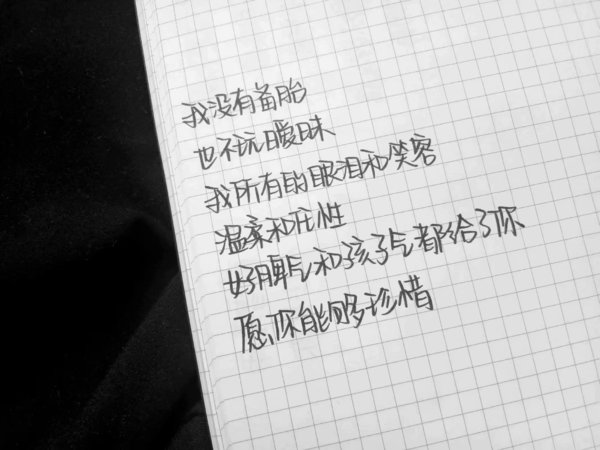 我没有备胎
也不玩暧昧
我所有的眼泪和笑容
温柔和任性
好脾气和孩子气都给了你
愿你能够珍惜